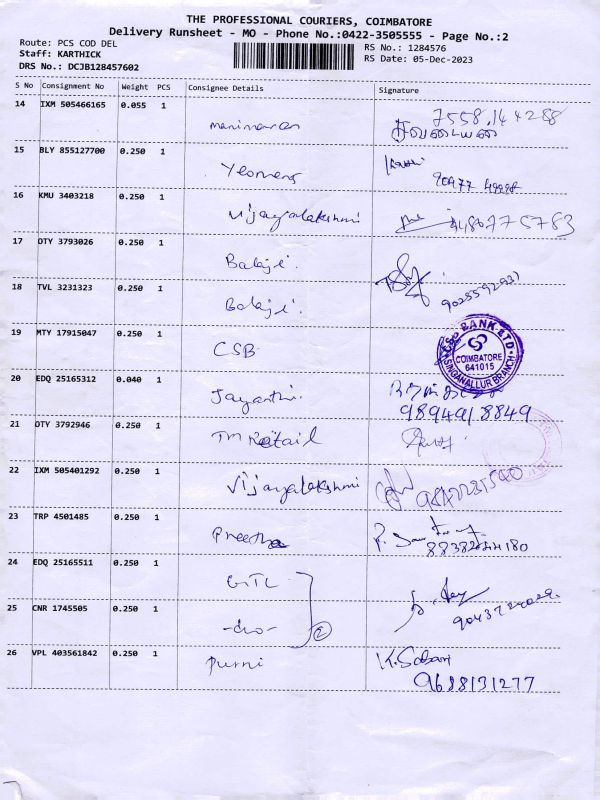 THE PROFESSIONAL COURIERS, COIMBATORE
Delivery Runsheet - MO - Phone No.:0422-3505555 - Page No.:2
Route: PCS COD DEL
RS No.: 1284576
Staff: KARTHICK
RS Date: 05-Dec-2023
DRS No.: DCJB128457602
S No Consignment No Weight PCS Consignee Details Signature
14 IXM 505466165 0.055 1 Manimaran 7558.144288
15 BLY 855127700 0.250 1 Yeomens
16 KMU 3403218 0.250 1 Vijayalakshmi
17 OTY 3793026 0.250 1 Balaji.
18 TVL 3231323 0.250 1 Balaji.
19 MTY 17915047 0.250 1 CSB
CSB BANK LTD
COIMBATORE
641015
SINGANALLUR BRANCH
20 EDQ 25165312 0.040 1 Jayanthi.
9894918849
21 OTY 3792946 0.250 1 TM Retail
22 IXM 505401292 0.250 1 Vijayalakshmi
23 TRP 4501485 0.250 1 Preetha
24 EDQ 25165511 0.250 1 GITL
25 CNR 1745505 0.250 1 -do- 2
26 VPL 403561842 0.250 1 Purni K. Sabari
9688131277